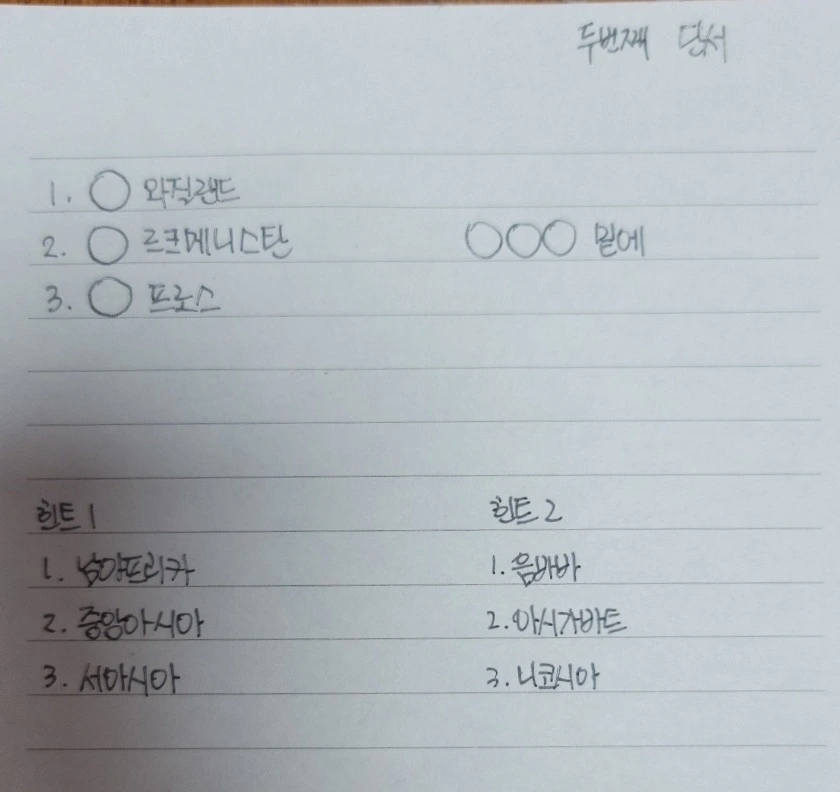 두번째 단서
1. ○ 와질랜드
2. ○ 르크메니스탄 ○○○ 밑에
3. ○ 프로스
힌트 1 힌트 2
1. 남아프리카 1. 음바바
2. 중앙아시아 2. 아시가바트
3. 서아시아 3. 니코시아